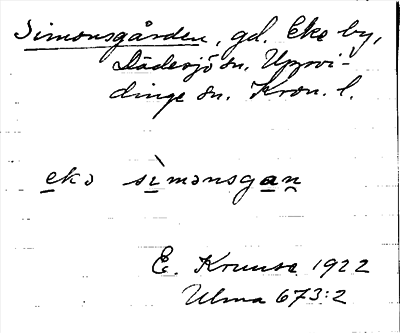 Simonsgården, gd. Eke by,
Dädesjö sn. Uppvi-
dinge sn. Kron. l.
ekə sìmənsgaṇ
E. Kruuse 1922
Ulma 673:2